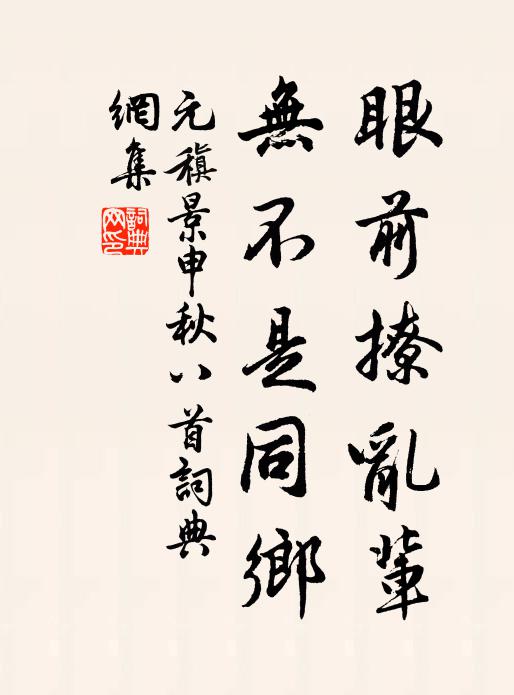 眼前撩亂輩
無不是同鄉
元稹景申秋八首詞典
網集
詞典
网印